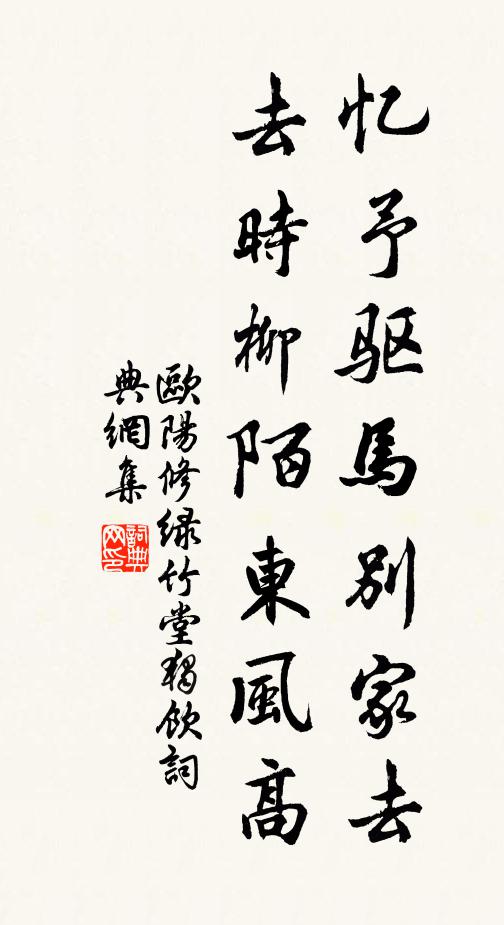 忆予驱馬別家去
去時柳陌東風高
歐陽修绿竹堂獨飲詞
典網集
詞典
网印